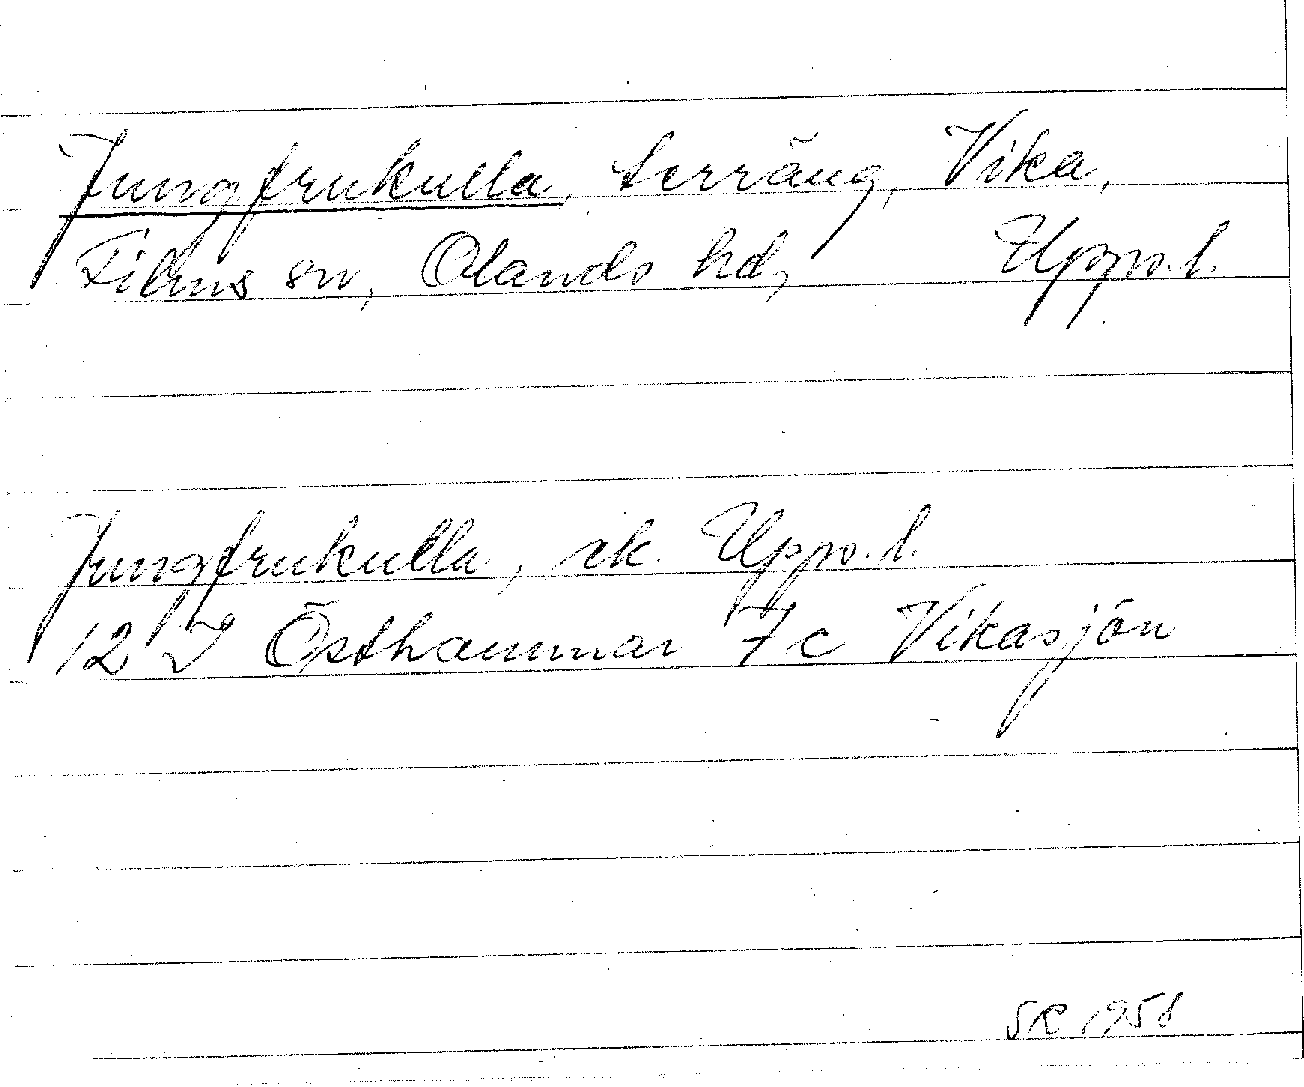 Jungfrukulla, terräng, Vika,
Films sn, Olands hd, Uppl.
Jungfrukulla, ek. Uppl.
12 I Östhammar 7 c Vikasjön
SR 1958